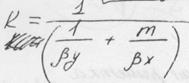 K = 1 / (1/βy + m/βx)